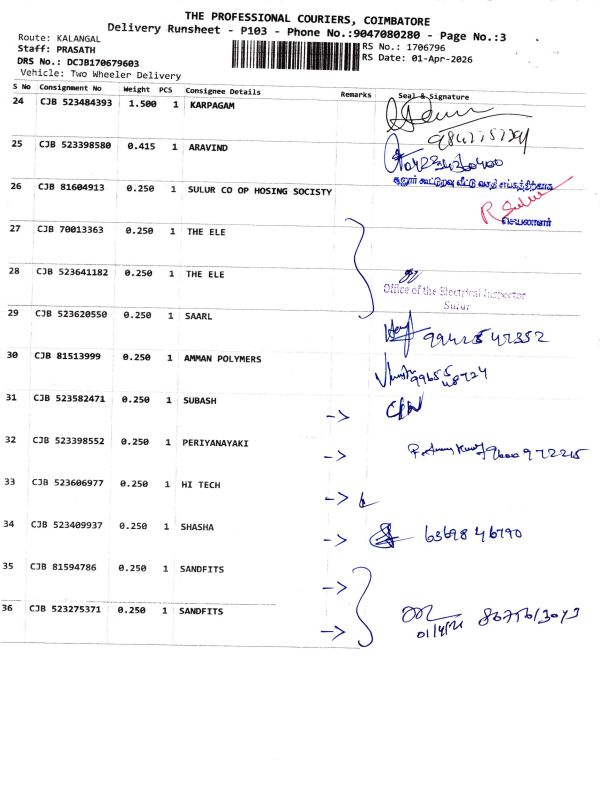 THE PROFESSIONAL COURIERS, COIMBATORE
Delivery Runsheet - P103 - Phone No.:9047080280 - Page No.:3
Route: KALANGAL
RS No.: 1706796
Staff: PRASATH
RS Date: 01-Apr-2026
DRS No.: DCJB170679603
Vehicle: Two Wheeler Delivery
S No Consignment No Weight PCS Consignee Details Remarks Seal & Signature
24 CJB 523484393 1.500 1 KARPAGAM
25 CJB 523398580 0.415 1 ARAVIND
26 CJB 81604913 0.250 1 SULUR CO OP HOSING SOCISTY
சூலூர் கூட்டுறவு வீட்டு வசதி சங்கத்திற்காக
செயலாளர்
27 CJB 70013363 0.250 1 THE ELE
28 CJB 523641182 0.250 1 THE ELE
Office of the Electrical Inspector
Sulur
29 CJB 523620550 0.250 1 SAARL
30 CJB 81513999 0.250 1 AMMAN POLYMERS
99655
48724
31 CJB 523582471 0.250 1 SUBASH ->
32 CJB 523398552 0.250 1 PERIYANAYAKI -> 9600972215
33 CJB 523606977 0.250 1 HI TECH ->
34 CJB 523409937 0.250 1 SHASHA -> 6369846790
35 CJB 81594786 0.250 1 SANDFITS ->
36 CJB 523275371 0.250 1 SANDFITS ->